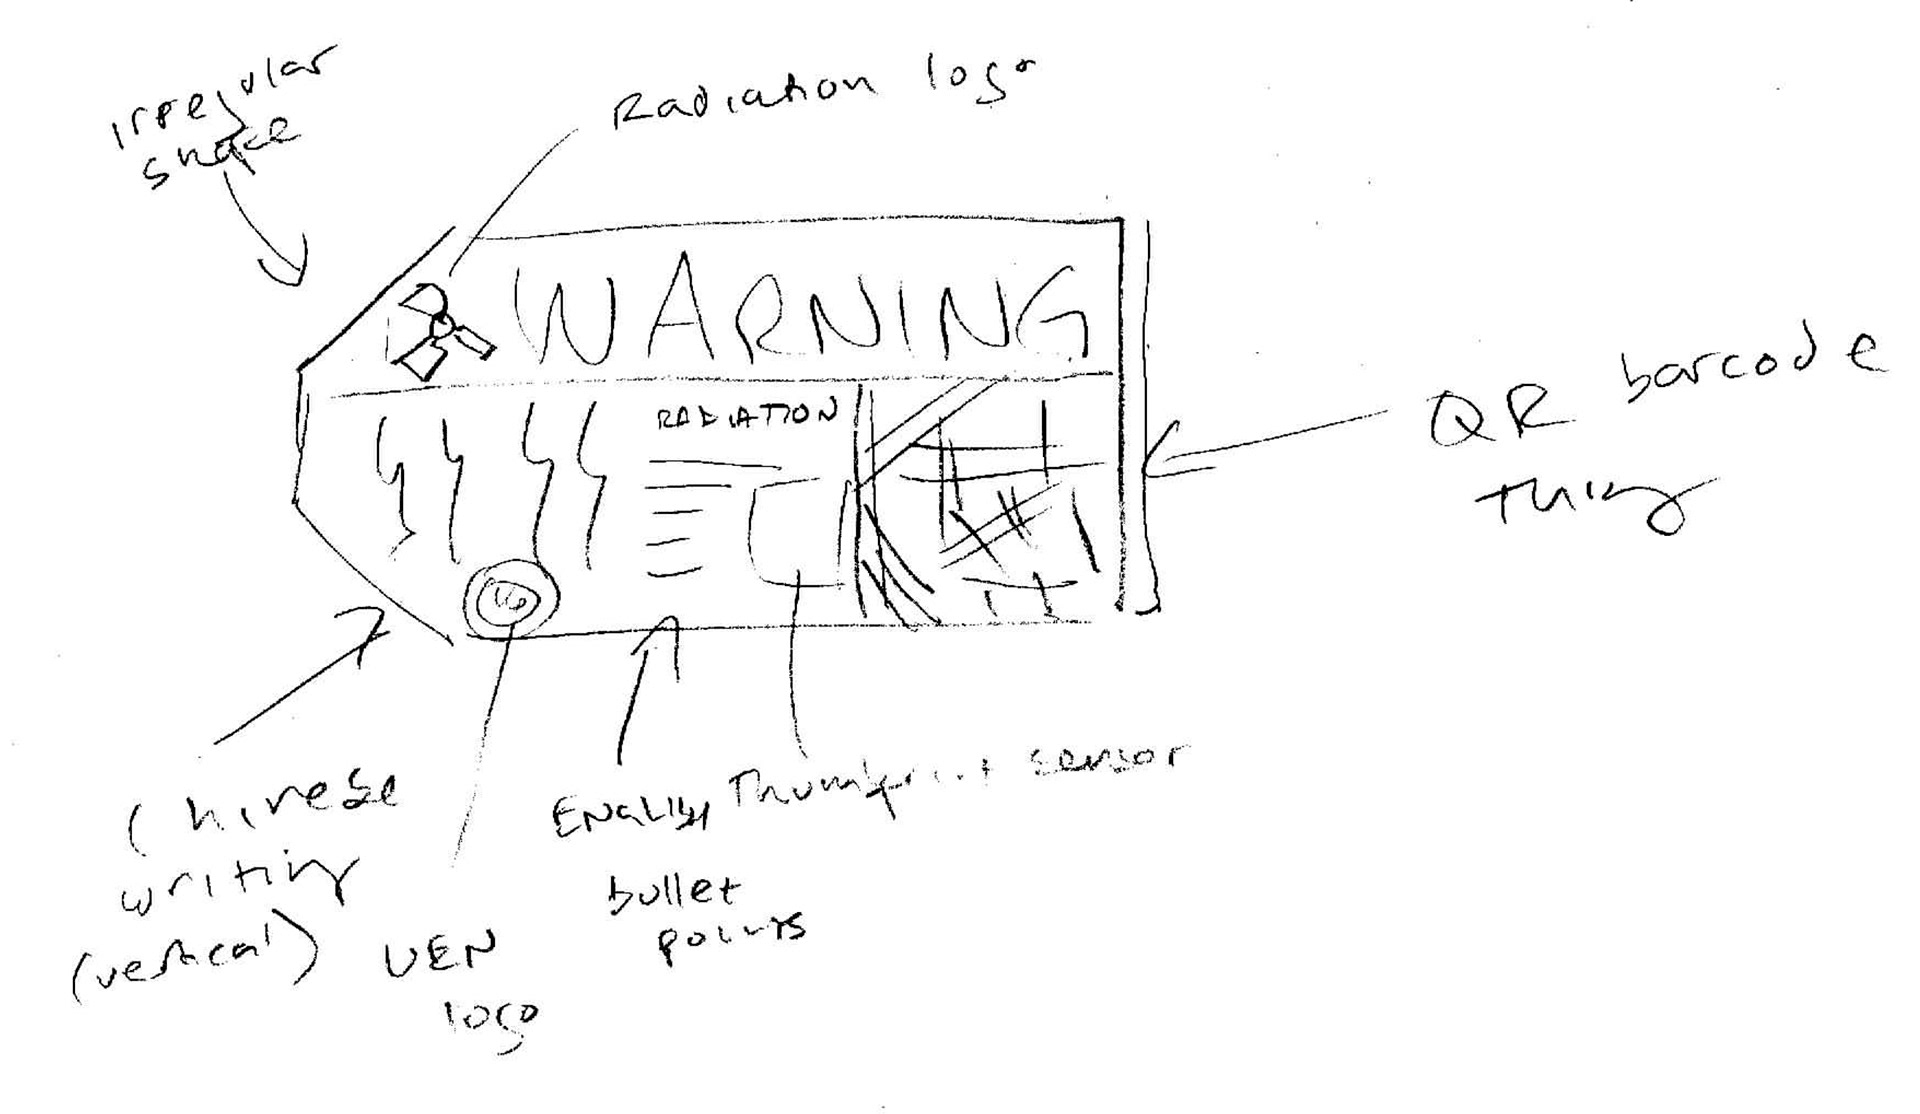 Irregular
shape
Radiation logo
WARNING
RADIATION
QR barcode
Thing
Chinese
writing
(vertical)
UEN
logo
ENGLISH
bullet
points
Thumbprint sensor